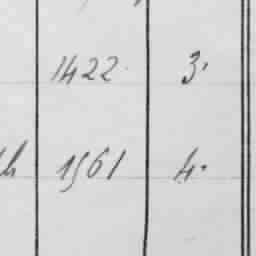 1422 3.
1561 4.